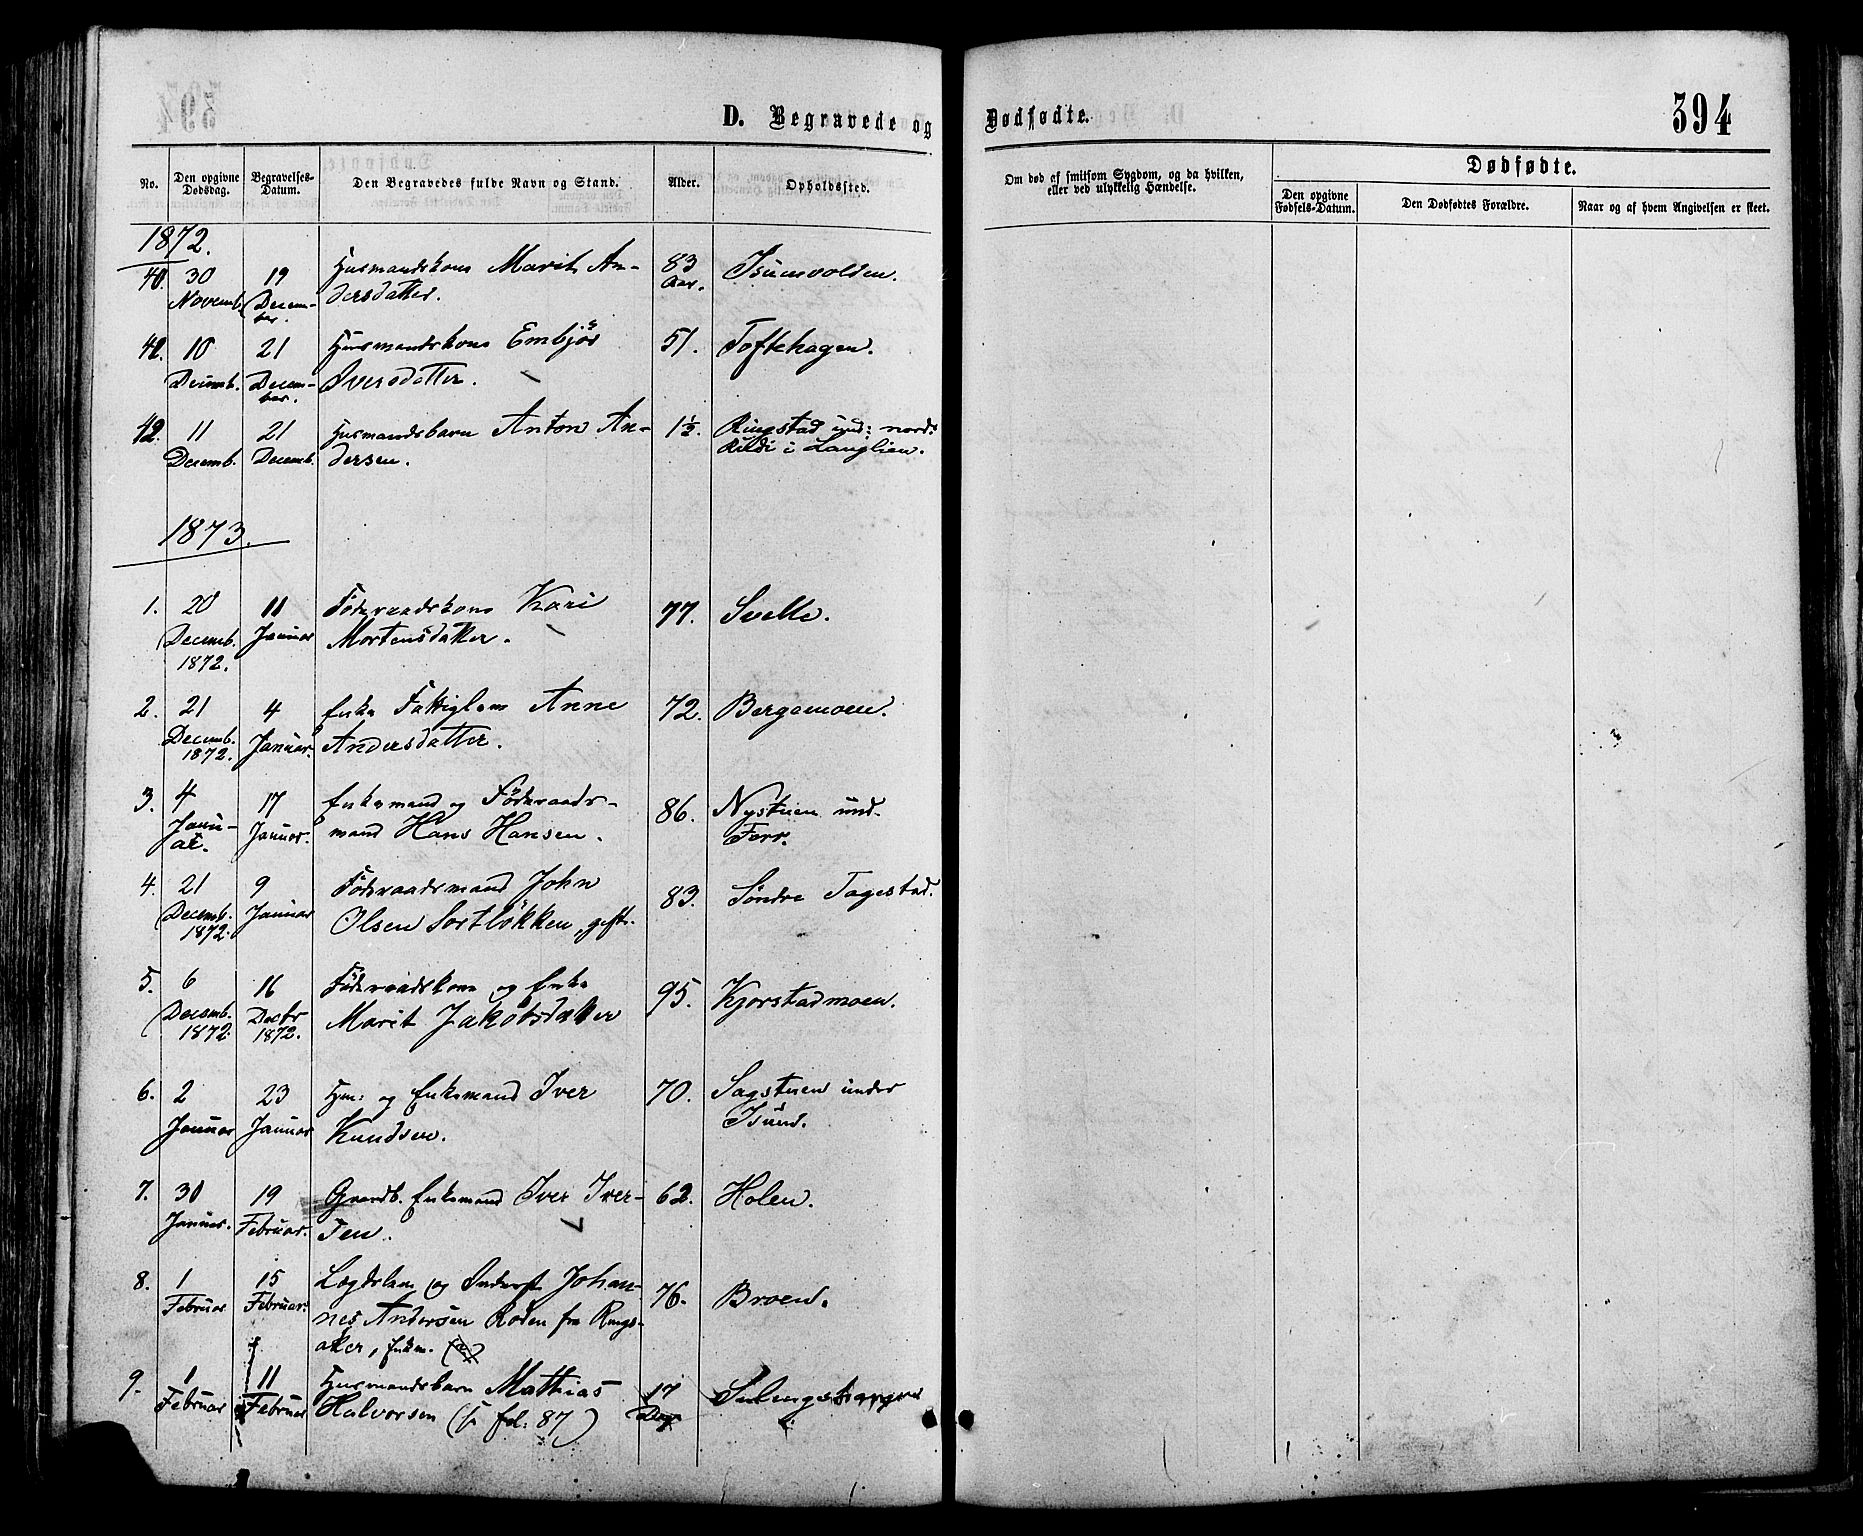 D. Begravede og Dødfødte.
394
No.
Den opgivne Dødsdag.
Begravelses-Datum.
Den Begravedes fulde Navn og Stand.
Alder.
Opholdssted.
Om død af smitsom Sygdom, og da hvilken, eller ved ulykkelig Hændelse.
Dødfødte.
Den opgivne Fødsels-Datum.
Den Dødfødtes Forældre.
Naar og af hvem Angivelsen er skeet.
1872.
40. 30 19 Husmandskone Marit An- 83 Isumvolden.
Novemb. Decem- dersdatter. Aar.
ber.
42. 10 21 Husmandskone Embjør 51. Toftehagen.
Decemb. Decem- Iversdatter.
ber.
42. 11 21 Husmandsbarn Anton An- 1½. Ringstad und: nord:
Decemb. Decemb. dersen. i Langlien.
1873.
1. 20 11 Föderaadskone Kari 77. Svelle.
Decemb. Januar Mortensdatter.
1872.
2. 21 4 Enke Fattiglem Anne 72. Bergemoen.
Decemb. Januar. Andersdatter.
1872.
3. 4 17 Enkemand og Föderaads- 86. Nystuen und.
Janu- Januar. mand Hans Hansen. Forr.
ar.
4. 21 9 Föderaadsmand John 83. Söndre Tagestad.
Decemb. Januar Olsen Sortløkken, gift.
1872.
5. 6 16 Föderaadskone og Enke 95. Kjorstadmoen.
Decemb. Decbr Marit Jakobsdatter
1872. 1872.
6. 2 23 Hm: og Enkemand Iver 70. Sagstuen under
Januar Januar Knudsen. Isund.
7. 30 19 Gaardb. Enkemand Iver Iver- 62. Holen.
Januar. Februar. sen.
8. 1 15 Lægdslem og Johan- 76. Broen.
Februar Februar. nes Andersen Roden fra Rings-
aker, Enkem.
9. 1 11 Husmandsbarn Mathias 17
Februar Februar Halvorsen (s. fol: 87) Dage